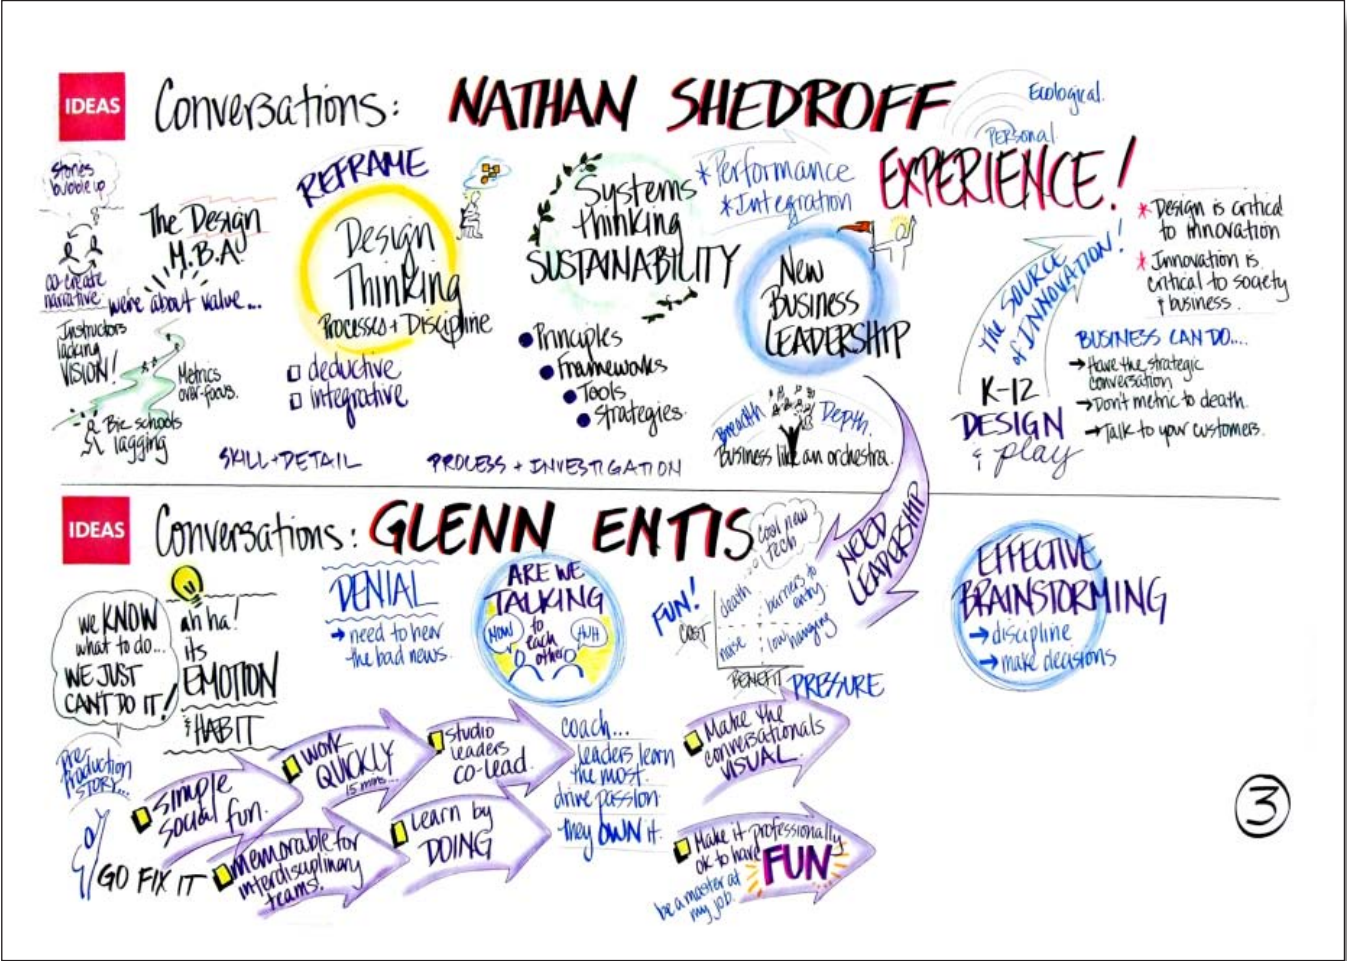 IDEAS
Conversations: NATHAN SHEDROFF
Ecological.
Personal
EXPERIENCE!
Stories
bubble up
co-create
narrative
The Design
M.B.A.
we're about value...
Instructors
lacking
VISION!
Metrics
over-focus.
Biz schools
lagging
REFRAME
Design
Thinking
Processes + Discipline
deductive
integrative
SKILL + DETAIL
Systems
thinking
SUSTAINABILITY
Principles
Frameworks
Tools
Strategies.
PROCESS + INVESTIGATION
* Performance
* Integration
New
Business
LEADERSHIP
Breadth
Depth.
Business like an orchestra.
THE SOURCE
of INNOVATION!
K-12
DESIGN
& play
* Design is critical
to innovation
* Innovation is
critical to society
& business.
BUSINESS CAN DO....
→ Have the strategic
conversation
→ Don't metric to death.
→ Talk to your customers.
NEED
LEADERSHIP
IDEAS
Conversations: GLENN ENTIS
we KNOW
what to do...
WE JUST
CAN'T DO IT!
ah ha!
its
EMOTION
& HABIT
DENIAL
→ need to hear
the bad news.
ARE WE
TALKING
to
each
other
WOW
HUH
FUN!
cool new
tech
COST
death
barriers to
entry
noise
low hanging
BENEFIT
PRESSURE
EFFECTIVE
BRAINSTORMING
→ discipline
→ make decisions
Pre
Production
STORY...
GO FIX IT
Simple
social fun.
WORK
QUICKLY
15 mins...
Studio
leaders
co-lead.
Memorable for
interdisciplinary
teams!
Learn by
DOING
coach...
leaders learn
the most.
drive passion
they OWN it.
Make the
conversationals
VISUAL.
Make it professionally
ok to have FUN
be a master at
my job.
3